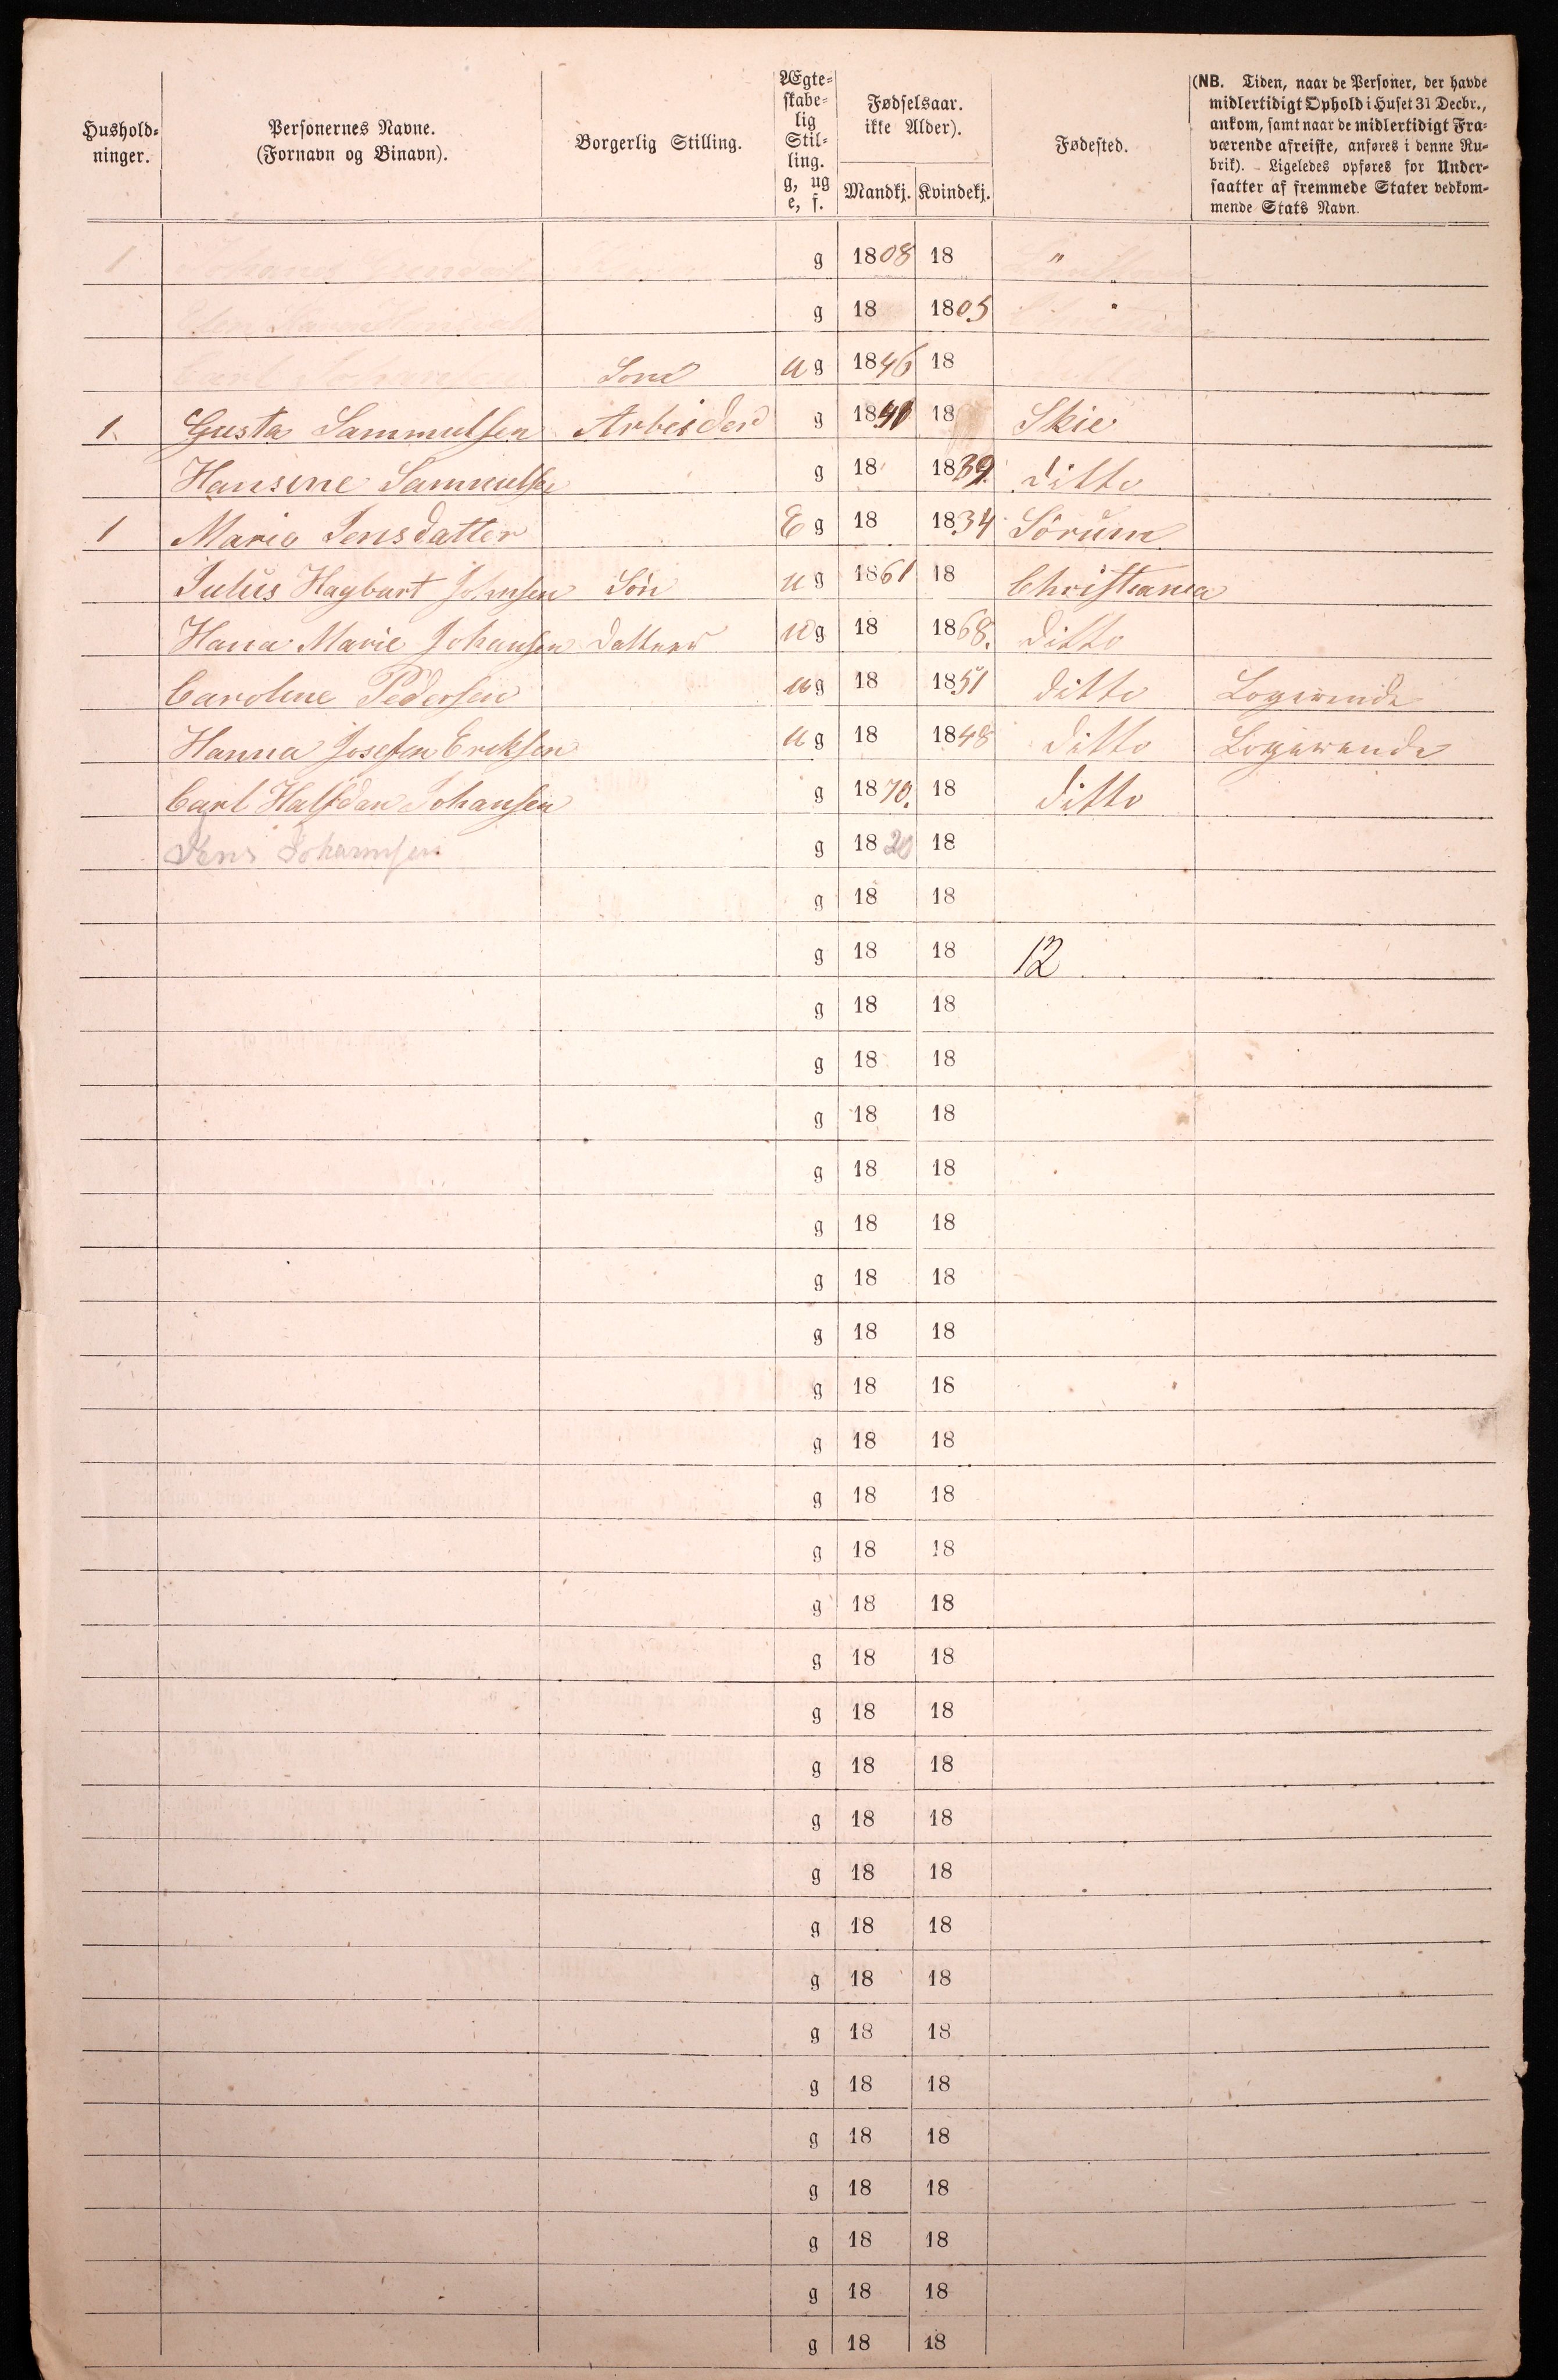 Hushold-
ninger.
Personernes Navne.
(Fornavn og Binavn).
Borgerlig Stilling.
Ægte-
skabe-
lig
Stil-
ling.
g, ug
e, f.
Fødselsaar.
ikke Alder).
Mandkj. Kvindekj.
Fødested.
(NB. Tiden, naar de Personer, der havde
midlertidigt Ophold i Huset 31 Decbr.,
ankom, samt naar de midlertidigt Fra-
værende afreiste, anføres i denne Ru-
brik). - Ligeledes opføres for Under-
saatter af fremmede Stater vedkom-
mende Stats Navn.
1 g 1808 18 "
g 18 1805 "
Carl Johansen Sønd ug 1846 18
1 Gusta Sammulsen Arbeider g 1840 18 Skie
Hansine Sammulsen g 18 1839 ditto
1 Marie Jensdatter Eg 18 1834 Sörum
Julius Hagbart Johnsen Sön ug 1861 18 Christiania
Hana Marie Johansen Datter ug 18 1868. ditto
Caroline Pedersen ug 18 1851 ditto Logerende
Hanna Josefen Eriksen ug 18 1848 ditto Logerende
Carl Halfdan Johansen g 1870. 18 ditto
Jens Johannsen g 1820 18
g 18 18
g 18 18 12
g 18 18
g 18 18
g 18 18
g 18 18
g 18 18
g 18 18
g 18 18
g 18 18
g 18 18
g 18 18
g 18 18
g 18 18
g 18 18
g 18 18
g 18 18
g 18 18
g 18 18
g 18 18
g 18 18
g 18 18
g 18 18
g 18 18
g 18 18
g 18 18
g 18 18
g 18 18